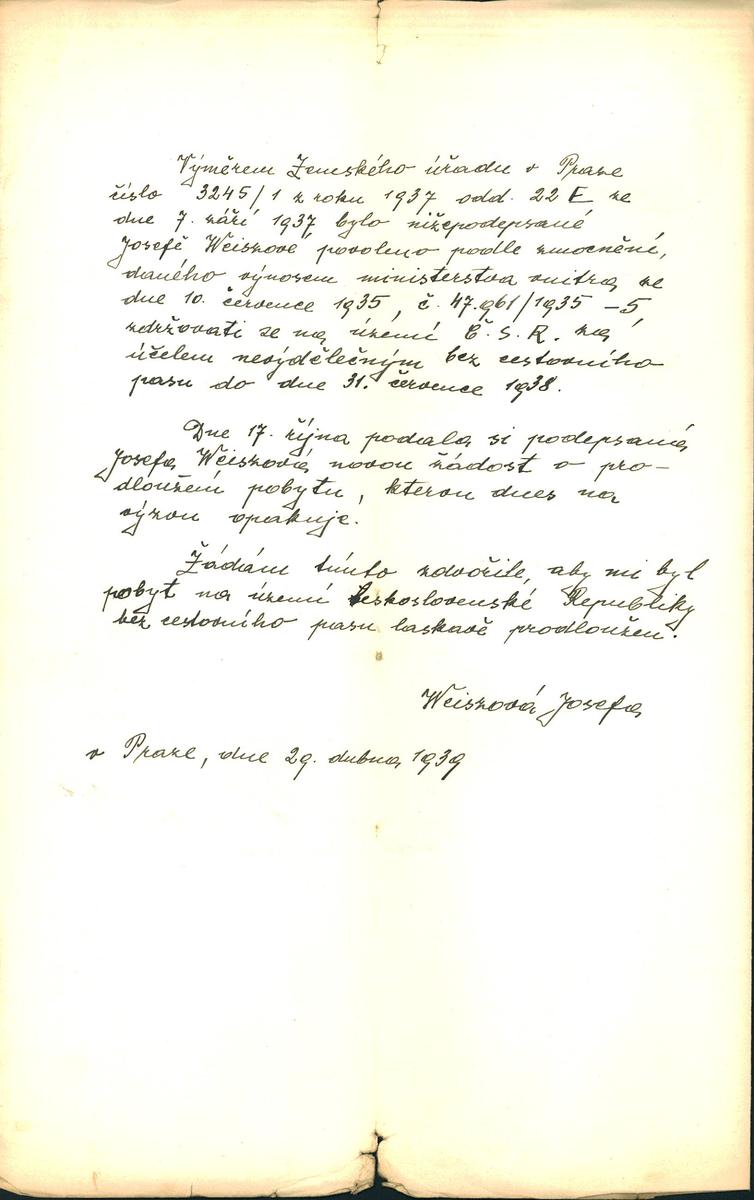 Výměrem Zemského úřadu v Praze
číslo 3245/1 z roku 1937 odd. 22 E ze
dne 7. září 1937 bylo nížepodepsané
Josefě Weiszové povoleno podle zmocnění,
daného výnosem ministerstva vnitra ze
dne 10. července 1935, č. 47.961/1935 -5,
zdržovati se na území Č. S. R. za
účelem nevýdělečným bez cestovního
pasu do dne 31. července 1938.
Dne 17. října podala si podepsaná
Josefa Weiszová novou žádost o pro-
dloužení pobytu, kterou dnes na
výzvu opakuje.
Žádám tímto zdvořile, aby mi byl
pobyt na území Československé Republiky
bez cestovního pasu laskavě prodloužen.
Weiszová Josefa
v Praze, dne 29. dubna 1939